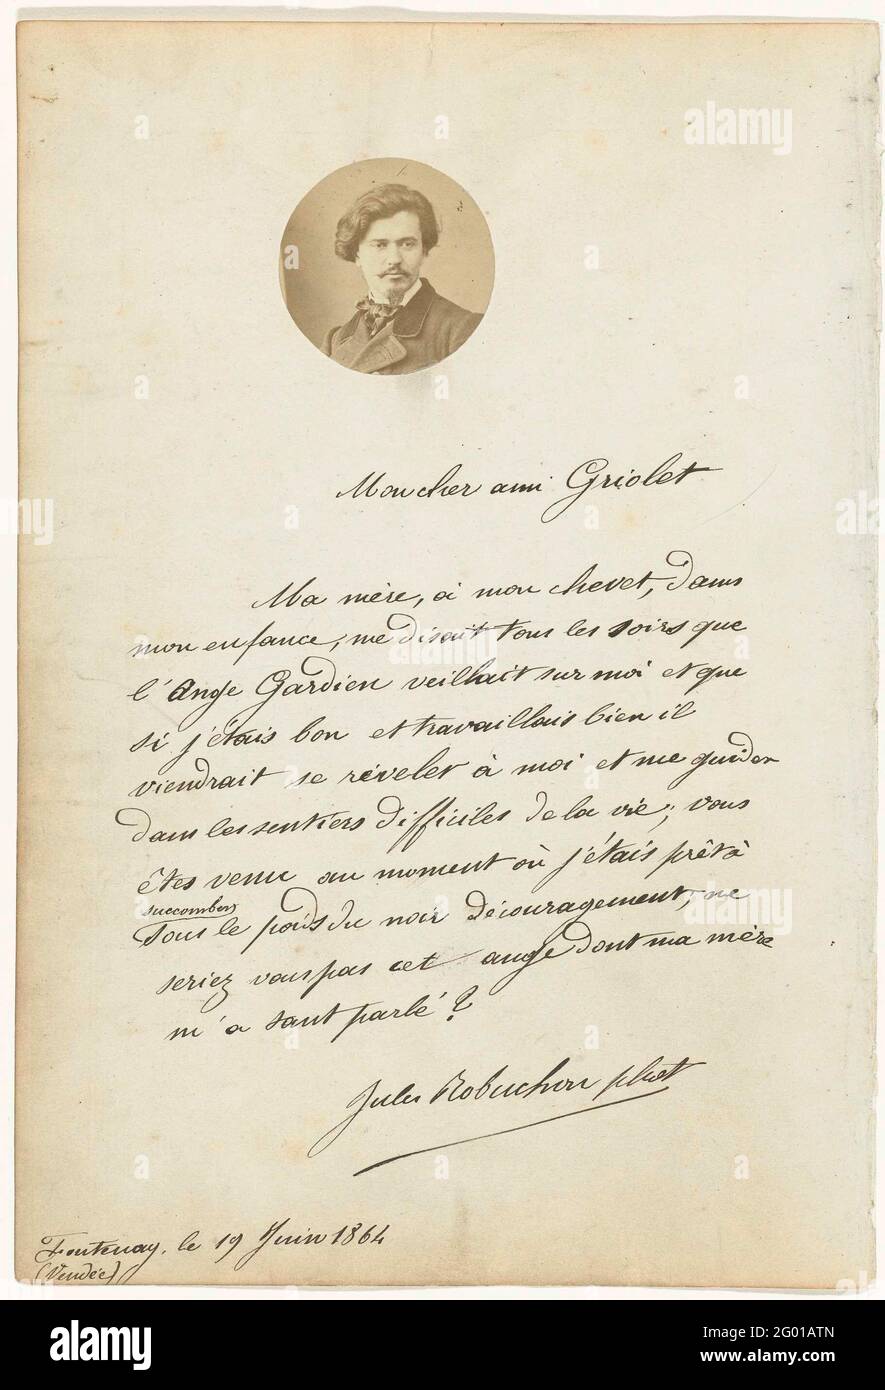 Mon cher ami Griolet
Ma mère, à mon chevet, dans
mon enfance, me disait tous les soirs que
l'Ange Gardien veillait sur moi et que
si j'étais bon et travaillais bien il
viendrait se révéler à moi et me guider
dans les sentiers difficiles de la vie; vous
êtes venu au moment où j'étais prêt à
succomber
sous le poids du noir découragement, ne
seriez vous pas cet ange dont ma mère
m'a tant parlé?
Jules Robuchon phot
Fontenay, le 19 Juin 1864
(Vendée)
alamy
alamy
alamy
alamy
alamy
alamy
Image ID: 2G01ATN
www.alamy.com